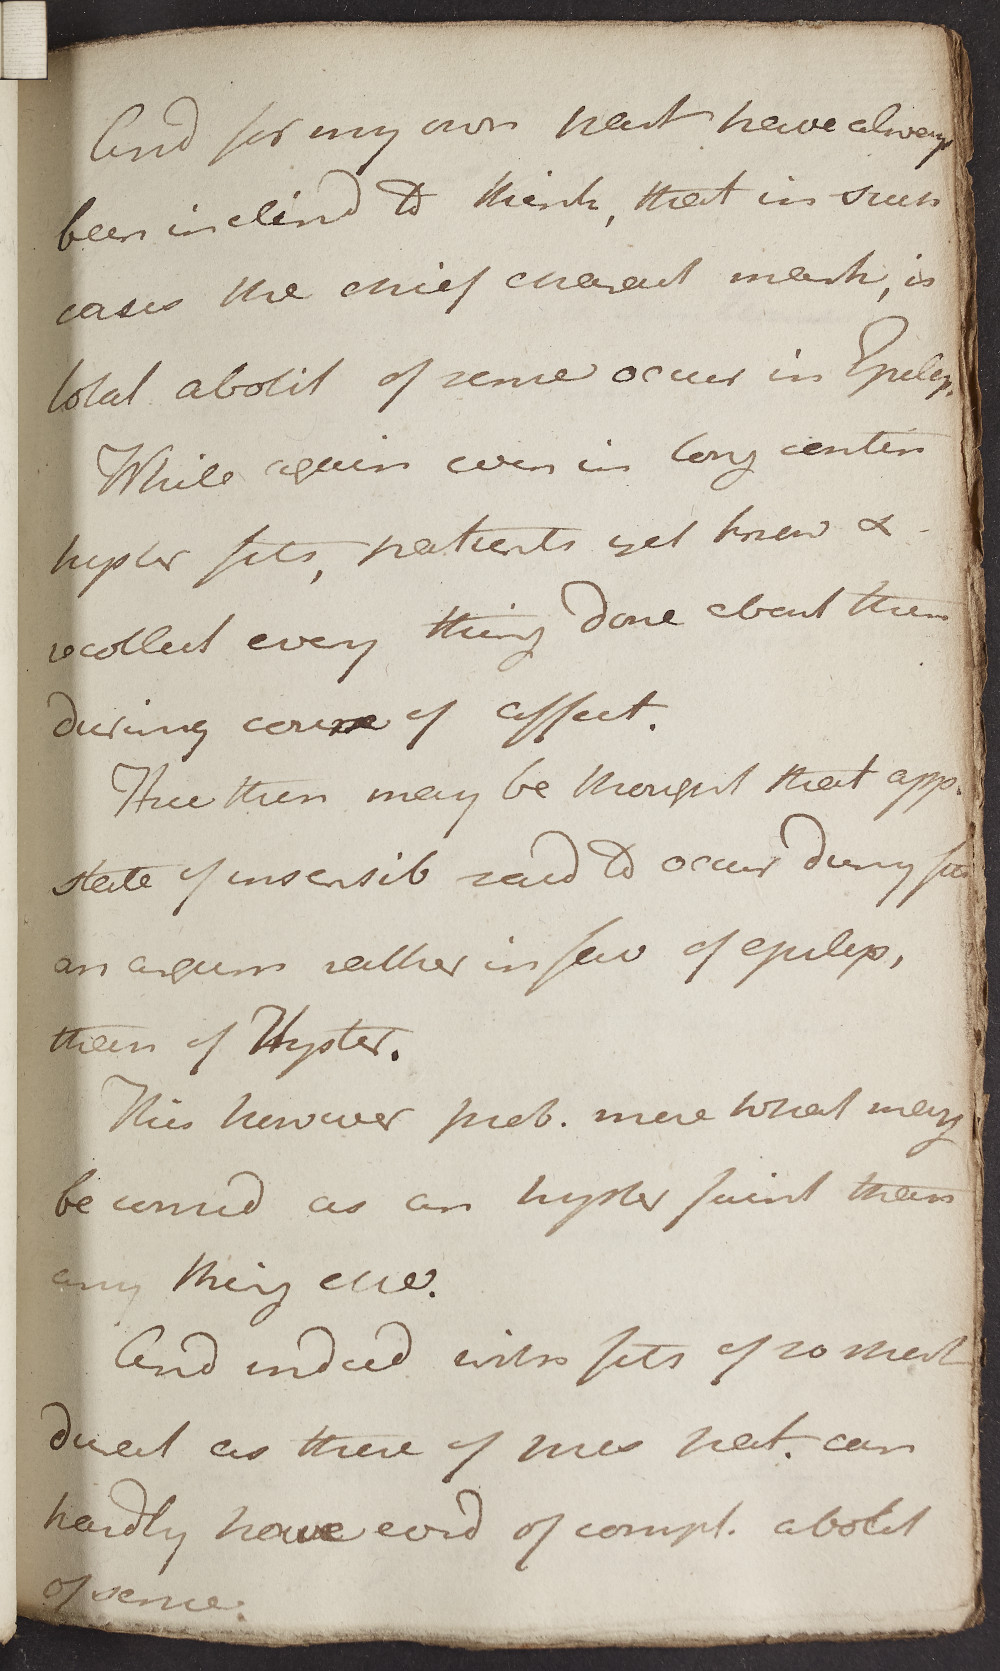 And for my own part have always
been inclind to think, that in such
cases the chief charact mark, is
total abolit of sense occur in Epilep.
While again even in long contin
hyster fits, patients yet know &
recollect every thing done about them
during course of affect.
Hee then may be thought that app.
state of insensib said to occur during fits
an argum rather in fav of epilep,
than of Hyster.
This however prob. more what may
be consid as an hyster faint than
any thing else.
And indeed with fits of so short
durat as those of this pat. can
hardly have evid of compl. abolit
of sense.